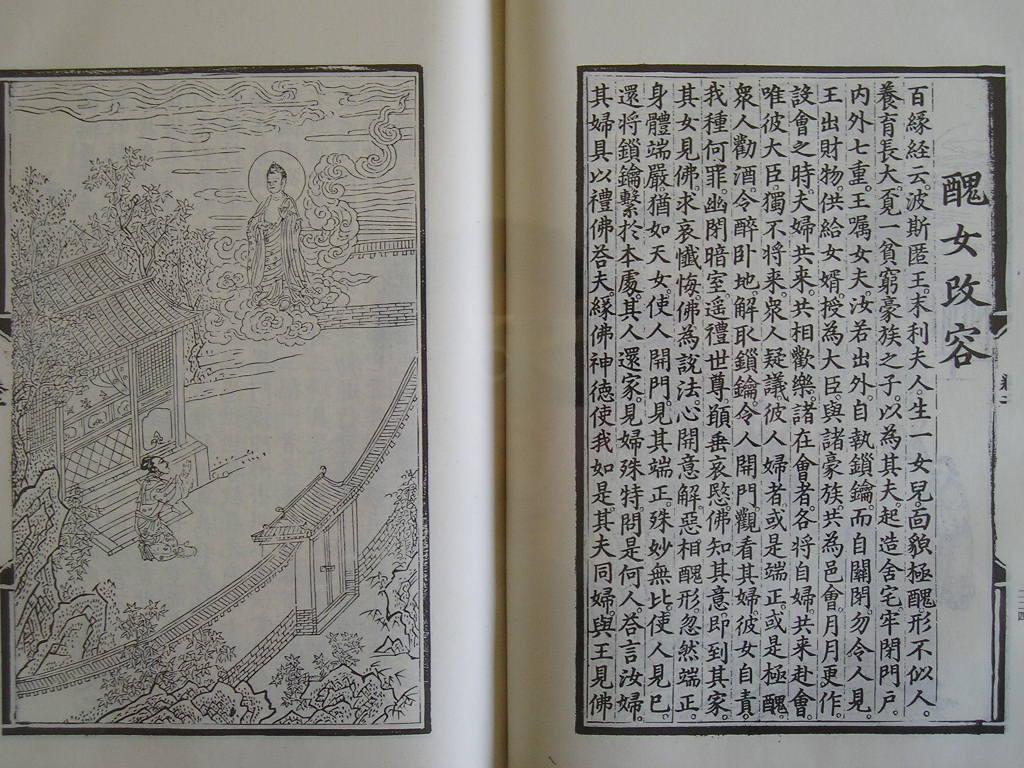 醜女改容
百緣經云。波斯匿王。末利夫人。生一女兒。面貌極醜。形不似人。
養育長大。覓一貧窮豪族之子。以為其夫。起造舍宅。牢閉門戶。
內外七重。王囑女夫。汝若出外。自執鎖鑰。而自關閉。勿令人見。
王出財物。供給女婿。授為大臣。與諸豪族。共為邑會。月月更作。
設會之時。夫婦共來。共相歡樂。諸在會者。各將自婦。共來赴會。
唯彼大臣。獨不將來。眾人疑議。彼人婦者。或是端正。或是極醜。
眾人勸酒。令醉臥地。解取鎖鑰。令人開門。觀看其婦。彼女自責。
我種何罪。幽閉暗室。遥禮世尊。願垂哀愍。佛知其意。即到其家。
其女見佛。求哀懺悔。佛為說法。心開意解。惡相醜形。忽然端正。
身體端嚴。猶如天女。使人開門。見其端正。殊妙無比。使人見已。
還將鎖鑰。繫於本處。其人還家。見婦殊特。問是何人。答言汝婦。
其婦具以禮佛答夫。緣佛神德。使我如是。其夫同婦。與王見佛
卷二